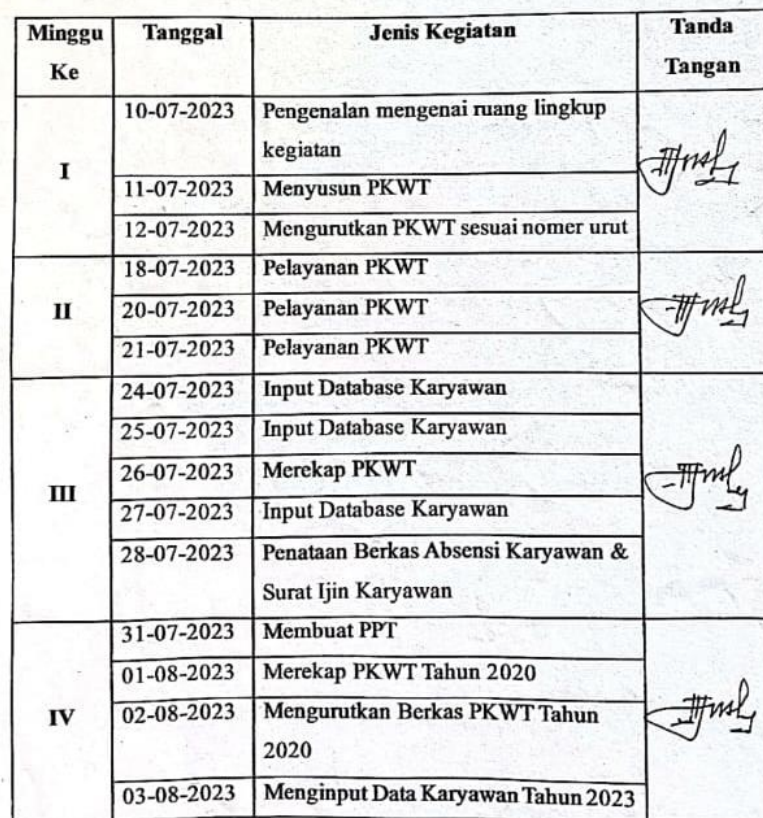 Minggu Ke Tanggal Jenis Kegiatan Tanda Tangan
I
10-07-2023 Pengenalan mengenai ruang lingkup
kegiatan
11-07-2023 Menyusun PKWT
12-07-2023 Mengurutkan PKWT sesuai nomer urut
II
18-07-2023 Pelayanan PKWT
20-07-2023 Pelayanan PKWT
21-07-2023 Pelayanan PKWT
III
24-07-2023 Input Database Karyawan
25-07-2023 Input Database Karyawan
26-07-2023 Merekap PKWT
27-07-2023 Input Database Karyawan
28-07-2023 Penataan Berkas Absensi Karyawan &
Surat Ijin Karyawan
IV
31-07-2023 Membuat PPT
01-08-2023 Merekap PKWT Tahun 2020
02-08-2023 Mengurutkan Berkas PKWT Tahun
2020
03-08-2023 Menginput Data Karyawan Tahun 2023